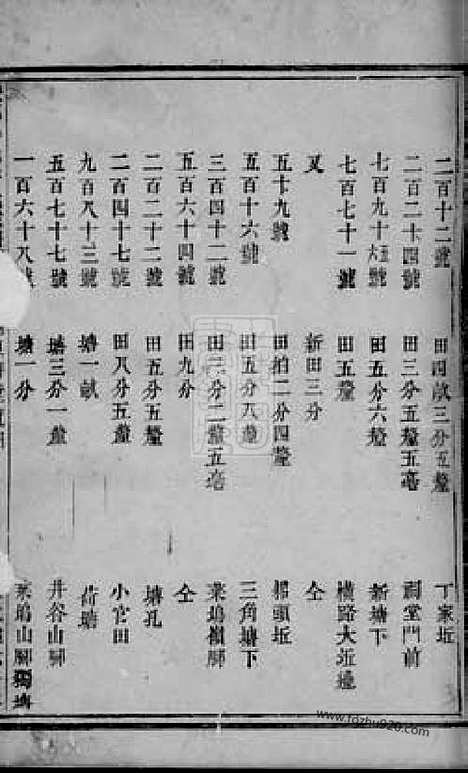 二百十二號 田四畝三分五釐 丁家坵
二百二十四號 田三分五釐五毫 祠堂門前
七百九十五號 田五分六釐 新塘下
七百七十一號 田五釐 橫路大坵邊
又 新田三分 仝
五十九號 田 二分四釐 頭坵
五百十六號 田五分八釐 三角塘下
三百四十二號 田 分二釐五毫 葉塢 脚
五百六十四號 田九分 仝
二百二十二號 田五分五釐 塘孔
二百四十七號 田八分五釐 小官田
九百八十三號 塘一畝 荷塘
五百七十七號 塘三分一釐 井谷山脚
一百六十八號 塘一分 葉塢山脚獨
www.fozhu920.com